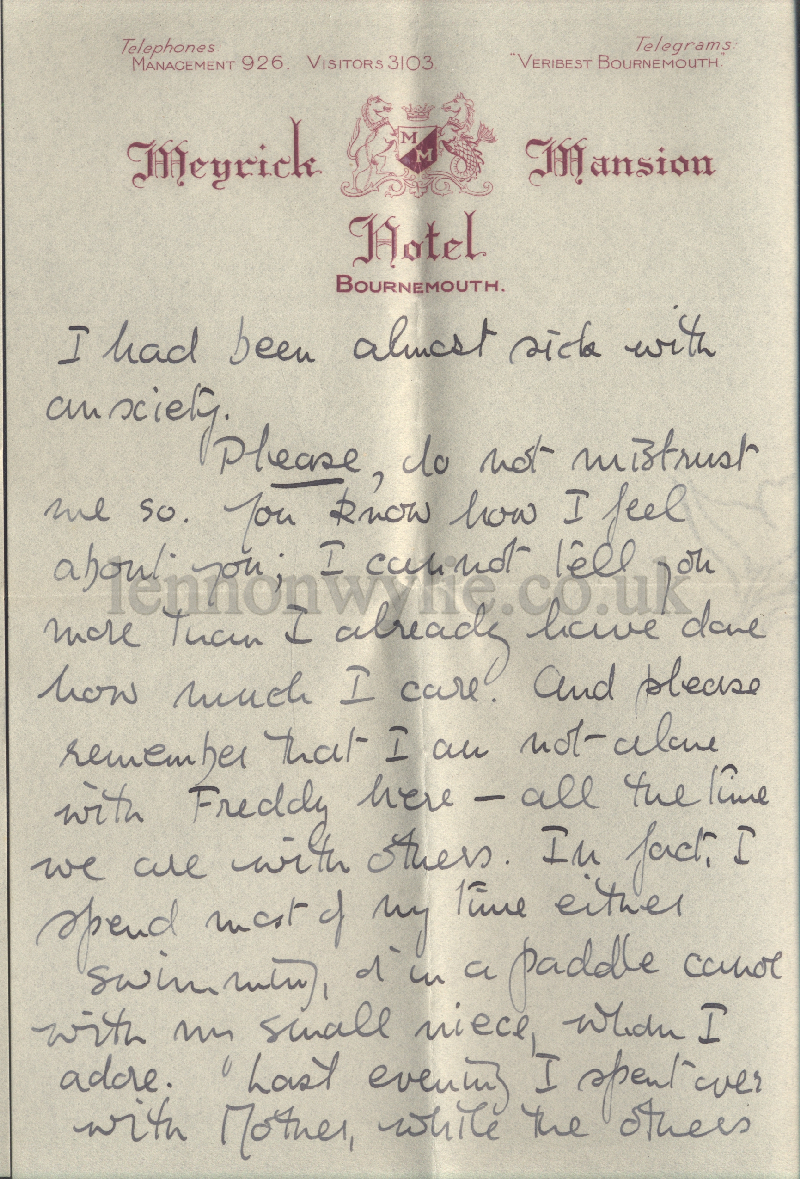 Telephones
Management 926. Visitors 3103.
Telegrams:
"Veribest Bournemouth."
M
M
Meyrick Mansion
Hotel
Bournemouth.
I had been almost sick with
anxiety.
Please, do not mistrust
me so. You know how I feel
about you; I cannot tell you
lennonwylie.co.uk
more than I already have done
how much I care. And please
remember that I am not alone
with Freddy here — all the time
we are with others. In fact, I
spend most of my time either
swimming, or in a paddle canoe
with my small niece, whom I
adore. Last evening I spent over
with Mother, while the others